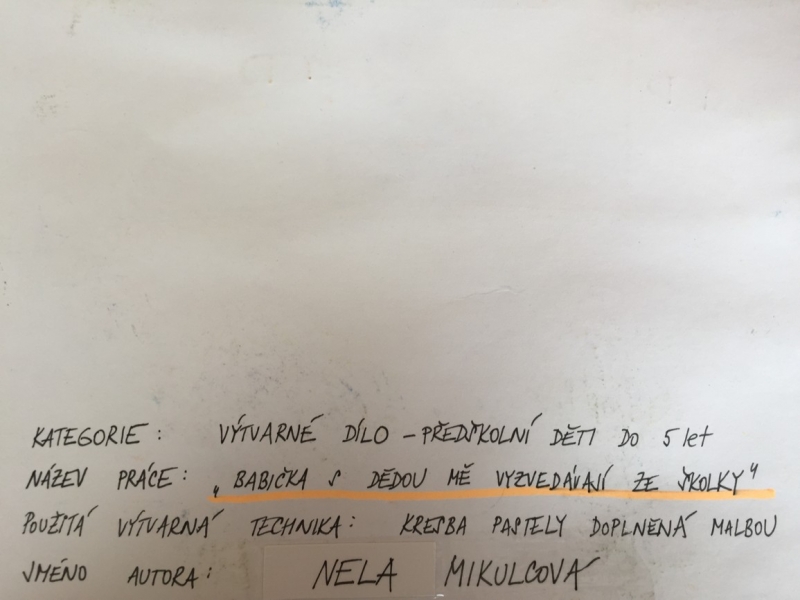 KATEGORIE: VÝTVARNÉ DÍLO – PŘEDŠKOLNÍ DĚTI DO 5 let
NÁZEV PRÁCE: „BABIČKA S DĚDOU MĚ VYZVEDÁVAJÍ ZE ŠKOLKY"
POUŽITÁ VÝTVARNÁ TECHNIKA: KRESBA PASTELY DOPLNĚNÁ MALBOU
JMÉNO AUTORA: NELA MIKULCOVÁ